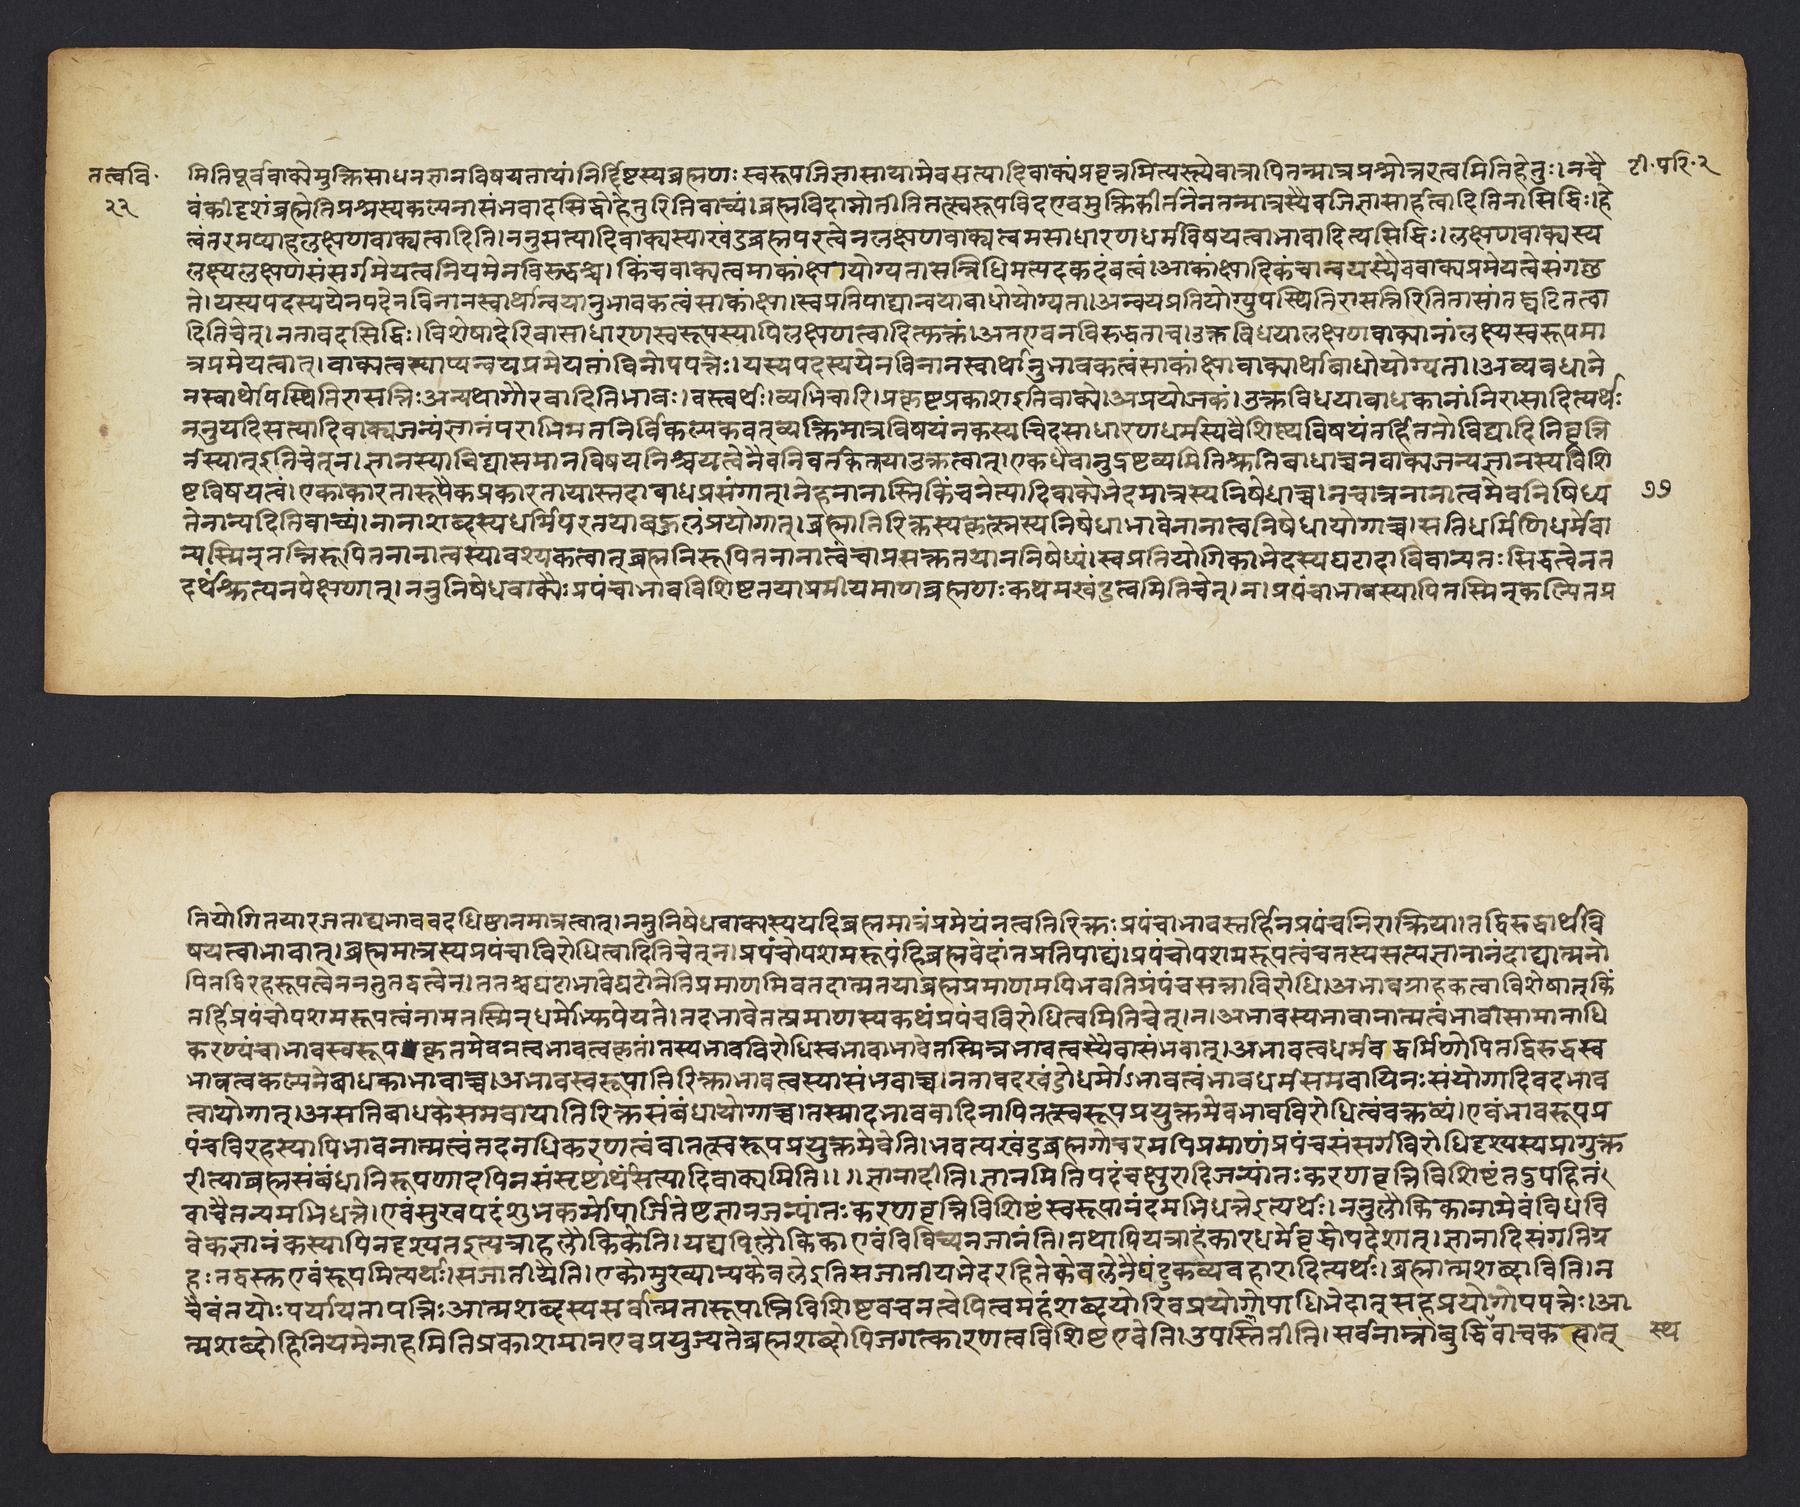 तत्ववि·
२२
टी·परि·२
मितिपूर्ववाक्येमुक्तिसाधनज्ञानविषयतायांनिर्दिष्टस्यब्रह्मणःस्वरूपजिज्ञासायामेवसत्यादिवाक्यंप्रवृत्तमित्यस्त्येवात्रापितन्मात्रप्रश्नोत्तरत्वमितिहेतुः।नचै
वंकीदृशंब्रह्मेतिप्रश्नस्यकल्पनासंभवादसिद्धोहेतुरितिवाच्यं।ब्रह्मविदाप्नोतीतितत्स्वरूपविदएवमुक्तिकीर्तनेनतन्मात्रस्यैवजिज्ञासार्हत्वादितिनासिद्धिः।हे
त्वंतरमप्याहलक्षणवाक्यत्वादिति।ननुसत्यादिवाक्यस्याखंडब्रह्मपरत्वेनलक्षणवाक्यत्वमसाधारणधर्मविषयत्वाभावादित्यसिद्धिः।लक्षणवाक्यस्य
लक्ष्यलक्षणसंसर्गमेयत्वनियमेनविरुद्धश्च।किंचवाक्यत्वमाकांक्षायोग्यतासन्निधिमत्पदकदंबत्वं।आकांक्षादिकंचान्वयस्यैववाक्यप्रमेयत्वेसंगछ
ते।यस्यपदस्ययेनपदेनविनानस्वार्थान्वयानुभावकत्वंसाकांक्षा।स्वप्रतिपाद्यान्वयाबाधोयोग्यता।अन्वयप्रतियोग्युपस्थितिरासत्तिरितितासांतद्घटितत्वा
दितिचेत्।नतावदसिद्धिः।विशेषादेरिवासाधारणस्वरूपस्यापिलक्षणत्वादित्युक्तं।अतएवनविरुद्धताच।उक्तविधयालक्षणवाक्यानांलक्ष्यस्वरूपमा
त्रप्रमेयत्वात्।वाक्यत्वस्याप्यन्वयप्रमेयतांविनोपपत्तेः।यस्यपदस्ययेनविनानस्वार्थानुभावकत्वंसाकांक्षावाक्यार्थाबाधोयोग्यता।अव्यवधाने
नस्वार्थोपस्थितिरासत्तिःअन्यथागौरवादितिभावः।वस्त्वर्थः।व्यभिचारि।प्रकृष्टप्रकाशइतिवाक्ये।अप्रयोजकं।उक्तविधयाबाधकानांनिरासादित्यर्थः
ननुयदिसत्यादिवाक्यजन्यंज्ञानंपराभिमतनिर्विकल्पकवत्व्यक्तिमात्रविषयंनकस्यचिदसाधारणधर्मस्यवैशिष्ट्यविषयंतर्हिततोविद्यादिनिवृत्ति
र्नस्यात्इतिचेत्न।ज्ञानस्याविद्यासमानविषयनिश्चयत्वेनैवनिवर्तकतयाउक्तत्वात्।एकधैवानुद्रष्टव्यमितिश्रुतिबाधाच्चनवाक्यजन्यज्ञानस्यविशि
ष्टविषयत्वं।एकाकारतारूपैकप्रकारतायास्तदाबाधप्रसंगात्।नेहनानास्तिकिंचनेत्यादिवाक्येभेदमात्रस्यनिषेधाच्च।नचात्रनानात्वमेवनिषिध्य
७७
तेनान्यदितिवाच्यं।नानाशब्दस्यधर्मिपरतयाबहुलंप्रयोगात्।ब्रह्मातिरिक्तस्यकृत्स्नस्यनिषेधाभावेनानात्वनिषेधायोगाच्च।सतिधर्मिणिधर्मेवा
न्यस्मिन्तन्निरूपितनानात्वस्यावश्यकत्वात्ब्रह्मनिरूपितनानात्वंचाप्रसक्ततयाननिषेध्यं।स्वप्रतियोगिकाभेदस्यघटादाविवान्यतःसिद्धत्वेनत
दर्थंश्रुत्यनपेक्षणात्।ननुनिषेधवाक्यैःप्रपंचाभावविशिष्टतयाप्रमीयमाणब्रह्मणःकथमखंडत्वमितिचेत्।न।प्रपंचाभावस्यापितस्मिन्कल्पितप्र
तियोगितयारजताद्यभाववदधिष्ठानमात्रत्वात्।ननुनिषेधवाक्यस्ययदिब्रह्ममात्रंप्रमेयंनत्वतिरिक्तःप्रपंचाभावस्तर्हिनप्रपंचनिराक्रिया।तद्विरुद्धार्थवि
षयत्वाभावात्।ब्रह्ममात्रस्यप्रपंचाविरोधित्वादितिचेत्न।प्रपंचोपशमरूपंहिब्रह्मवेदांतप्रतिपाद्यं।प्रपंचोपशमरूपत्वंचतस्यसत्यज्ञानानंदाद्यात्मनो
पितद्विरहरूपत्वेनननुतद्वत्वेन।ततश्चघटाभावेघटोनेतिप्रमाणमिवतदात्मतयाब्रह्मप्रमाणमपिभवतिप्रंपंचसत्ताविरोधि।अभावग्राहकत्वाविशेषात्किं
तर्हिप्रपंचोपशमरूपत्वंनामतस्मिन्धर्मोभ्युपेयते।तदभावेतत्प्रमाणस्यकथंप्रपंचविरोधित्वमितिचेत्।न।अभावस्यभावानात्मत्वंभावासामानाधि
करण्यंचाभावस्वरूपकृतमेवनत्वभावत्वकृतं।तस्यभावविरोधिस्वभावाभावेतस्मिन्नभावत्वस्यैवासंभवात्।अभावत्वधर्मवद्धर्मिणोपितद्विरुद्धस्व
भावत्वकल्पनेबाधकाभावाच्च।अभावस्वरूपातिरिक्ताभावत्वस्यासंभवाच्च।नतावदखंडोधर्मोऽभावत्वंभावधर्मसमवायिनःसंयोगादिवदभाव
त्वायोगात्।असतिबाधकेसमवायातिरिक्तसंबंधायोगाच्च।तस्मादभाववादिनापितत्स्वरूपप्रयुक्तमेवभावविरोधित्वंवक्तव्यं।एवंभावरूपप्र
पंचविरहस्यापिभावनात्मत्वंतदनधिकरणत्वंवातत्स्वरूपप्रयुक्तमेवेति।भवत्यखंडब्रह्मगोचरमपिप्रमाणंप्रपंचसंसर्गविरोधिदृश्यस्यप्रागुक्त
रीत्याब्रह्मसंबंधानिरूपणादपिनसंसृष्टार्थंसत्यादिवाक्यमिति।।।।ज्ञानादीति।ज्ञानमितिपदंचक्षुरादिजन्यांतःकरणवृत्तिविशिष्टंतदुपहितं
वाचैतन्यमभिधत्ते।एवंसुखपदंशुभकर्मोपार्जितेष्टज्ञानजन्यांतःकरणवृत्तिविशिष्टंस्वरूपानंदमभिधत्तेइत्यर्थः।ननुलौकिकानामेवंविधंवि
वेकज्ञानंकस्यापिनदृश्यतइत्यत्राहलौकिकेति।यद्यपिलौकिकाएवंविविच्यनजानंति।तथापियत्राहंकारधर्मेवृद्धोपदेशात्।ज्ञानादिसंगतिग्र
हःतद्वस्तुएवंरूपमित्यर्थः।सजातीयेति।एकोमुख्यान्यकेवलेइतिसजातीयभेदरहितेकेवलेनैपंदुकव्यवहारादित्यर्थः।ब्रह्मात्मशब्दाविति।न
चैवंतयोःपर्यायतापत्तिःआत्मशब्दस्यसर्वात्मतारूपात्तिविशिष्टवचनत्वेपित्वमहंशब्दयोरिवप्रयोगोपाधिभेदात्सहप्रयोगोपपत्तेः।आ
त्मशब्दोहिनियमेनाहमितिप्रकाशमानएवप्रयुज्यतेब्रह्मशब्दोपिजगत्कारणत्वविशिष्टएवेति।उपस्तितीति।सर्वनाम्नांबुद्धिवाचकत्वात् स्थ